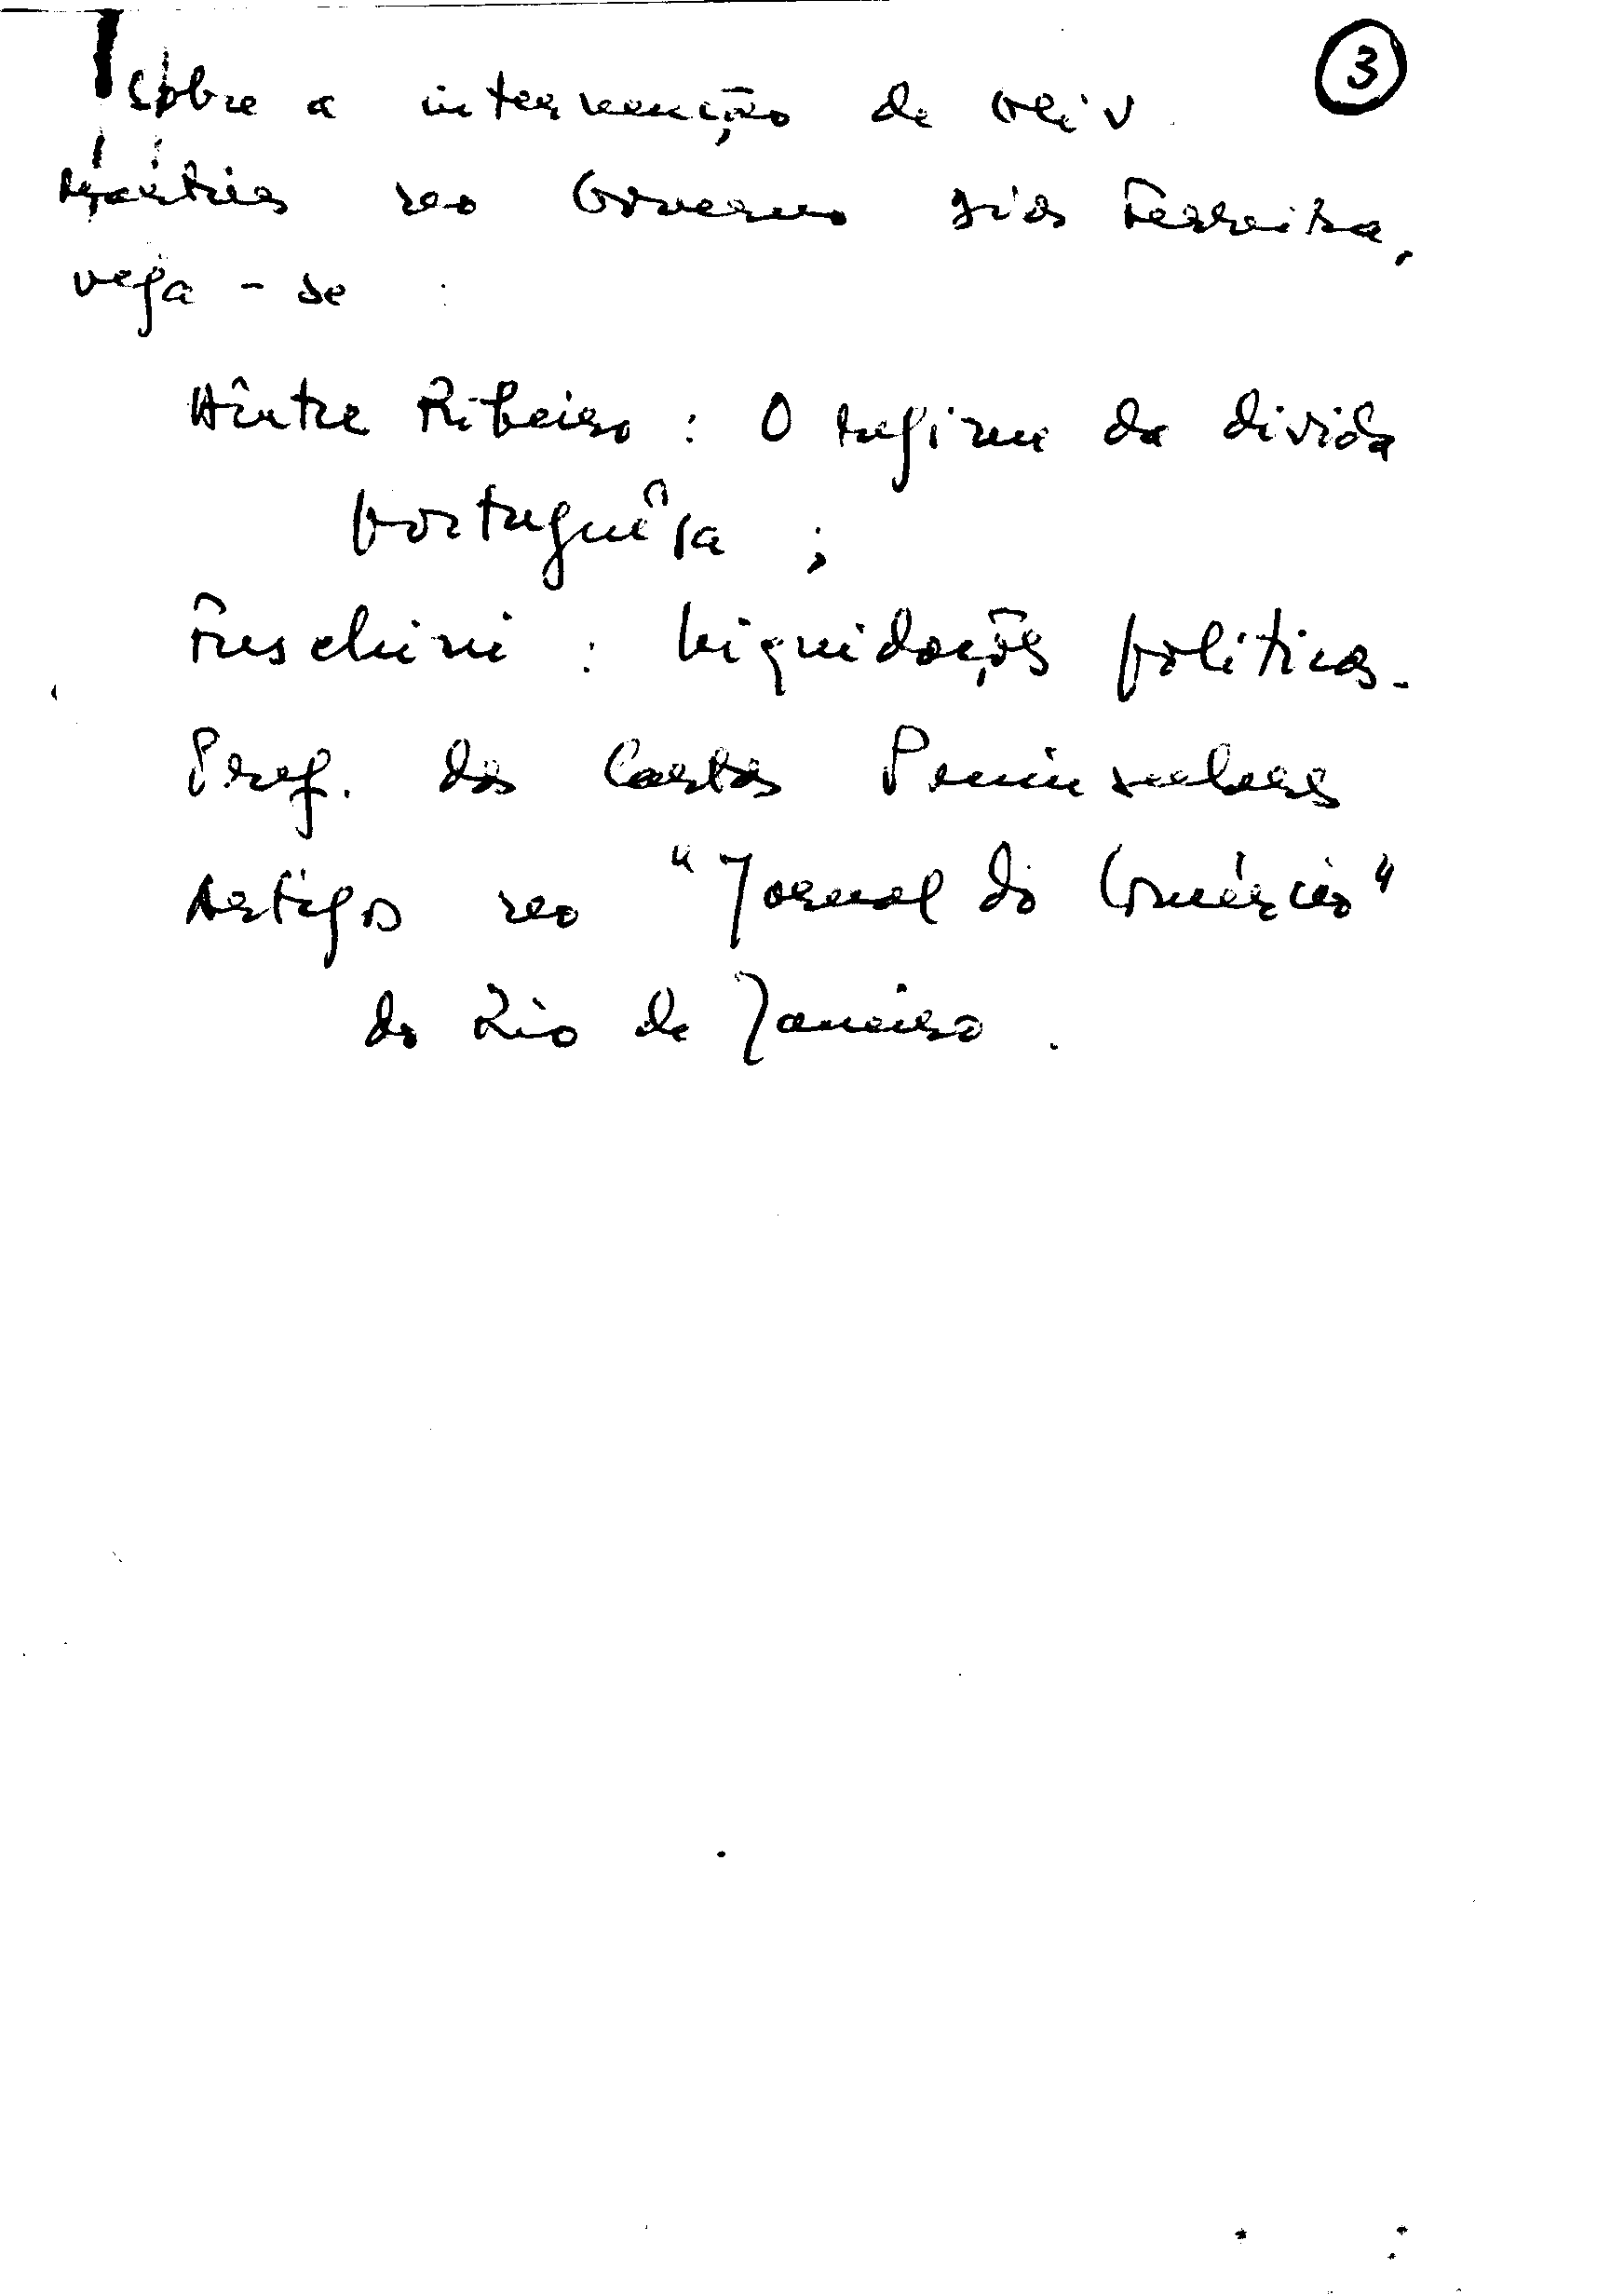 3
Sobre a intervenção de Oliv.
Martins no Governo Dias Ferreira,
veja-se :
Hintze Ribeiro : O regime da divida
portuguêsa ;
Fuschini : Liquidações politicas.
Pref. das Cartas Peninsulares
Artigos no "Jornal do Comércio"
do Rio de Janeiro.